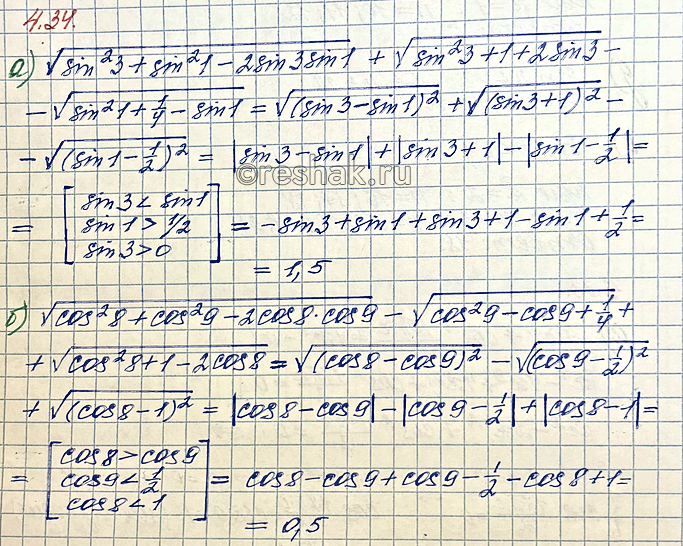 4.34.
а) √(sin²3 + sin²1 − 2sin3sin1) + √(sin²3 + 1 + 2sin3) −
− √(sin²1 + 1/4 − sin1) = √((sin3 − sin1)²) + √((sin3 + 1)²) −
− √((sin1 − 1/2)²) = |sin3 − sin1| + |sin3 + 1| − |sin1 − 1/2| =
©reshak.ru
= [sin3 < sin1
sin1 > 1/2
sin3 > 0] = −sin3 + sin1 + sin3 + 1 − sin1 + 1/2 =
= 1,5
б) √(cos²8 + cos²9 − 2cos8·cos9) − √(cos²9 − cos9 + 1/4) +
+ √(cos²8 + 1 − 2cos8) = √((cos8 − cos9)²) − √((cos9 − 1/2)²)
+ √((cos8 − 1)²) = |cos8 − cos9| − |cos9 − 1/2| + |cos8 − 1| =
= [cos8 > cos9
cos9 < 1/2
cos8 < 1] = cos8 − cos9 + cos9 − 1/2 − cos8 + 1 =
= 0,5